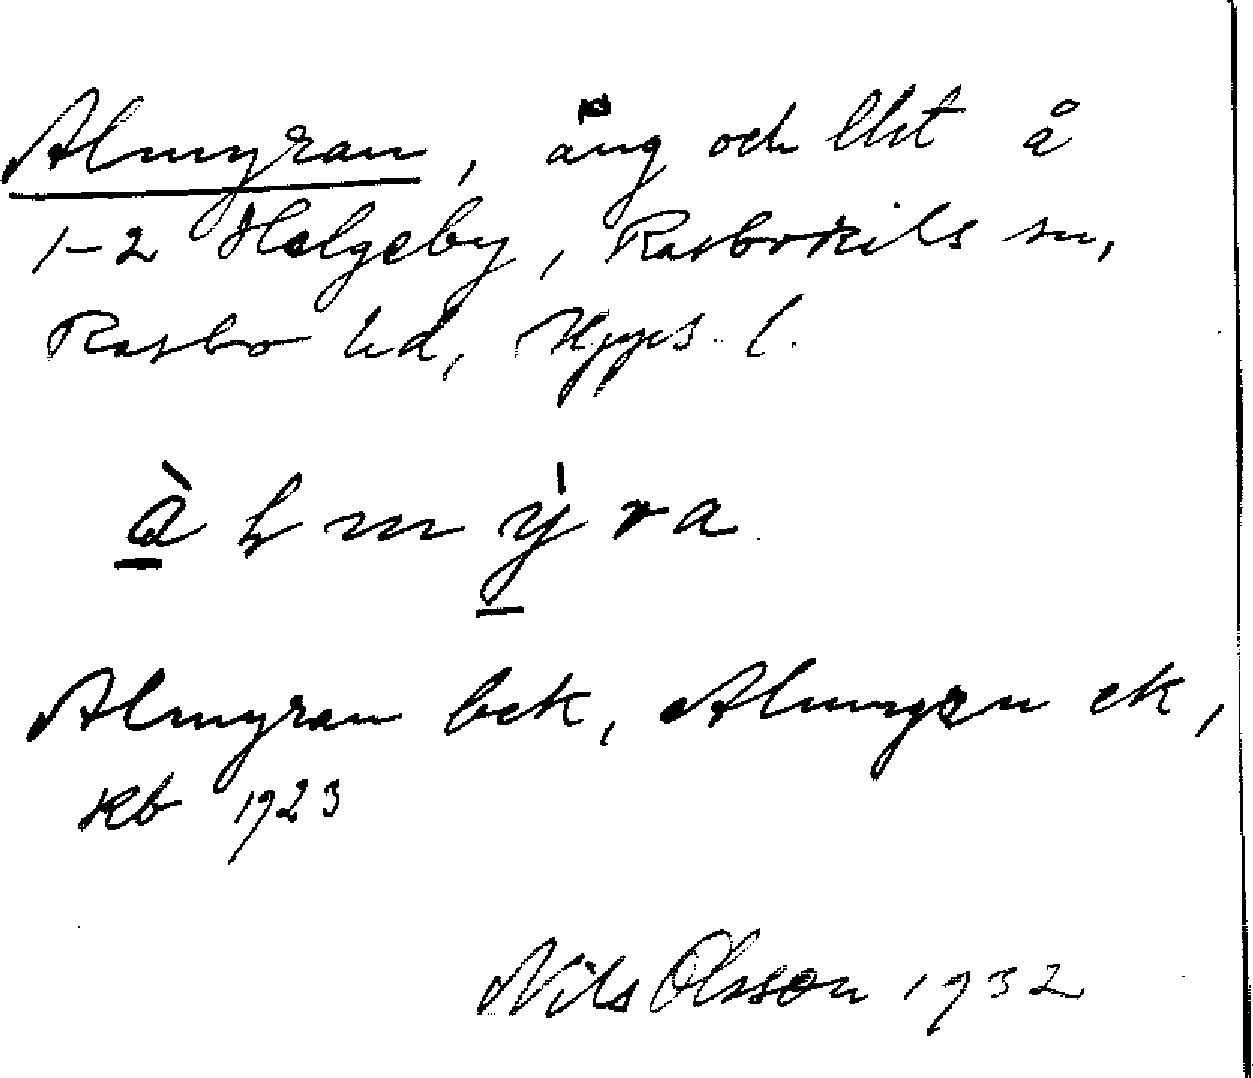 Almyran, äng och llkt å
1-2 Helgeby, Rasbokils sn,
Rasbo hd, Upps. l.
àḷmy̍ra
Almyran bek, Almyrn ek,
kb 1923
Nils Olsson 1932